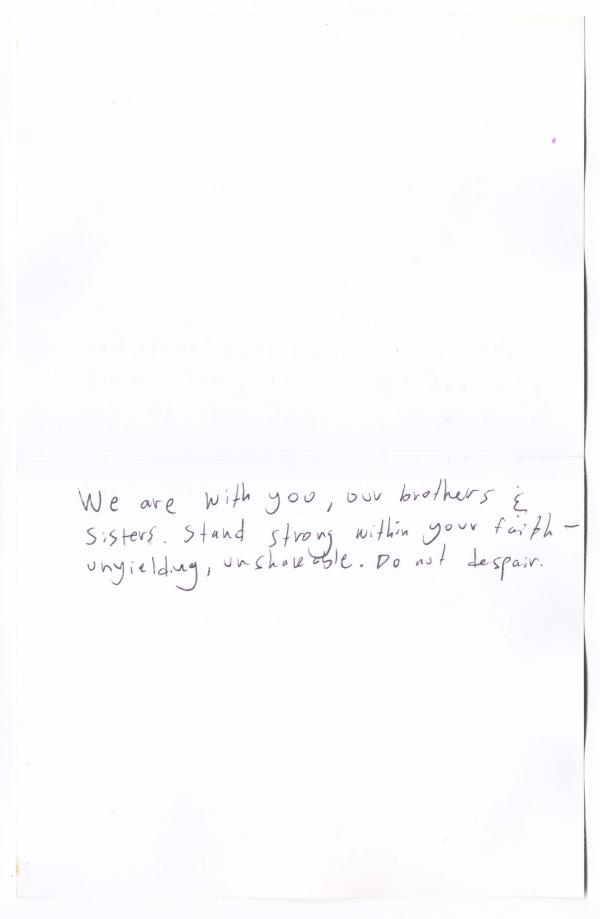 We are with you, our brothers &
sisters. Stand strong within your faith –
unyielding, unshakeable. Do not despair.